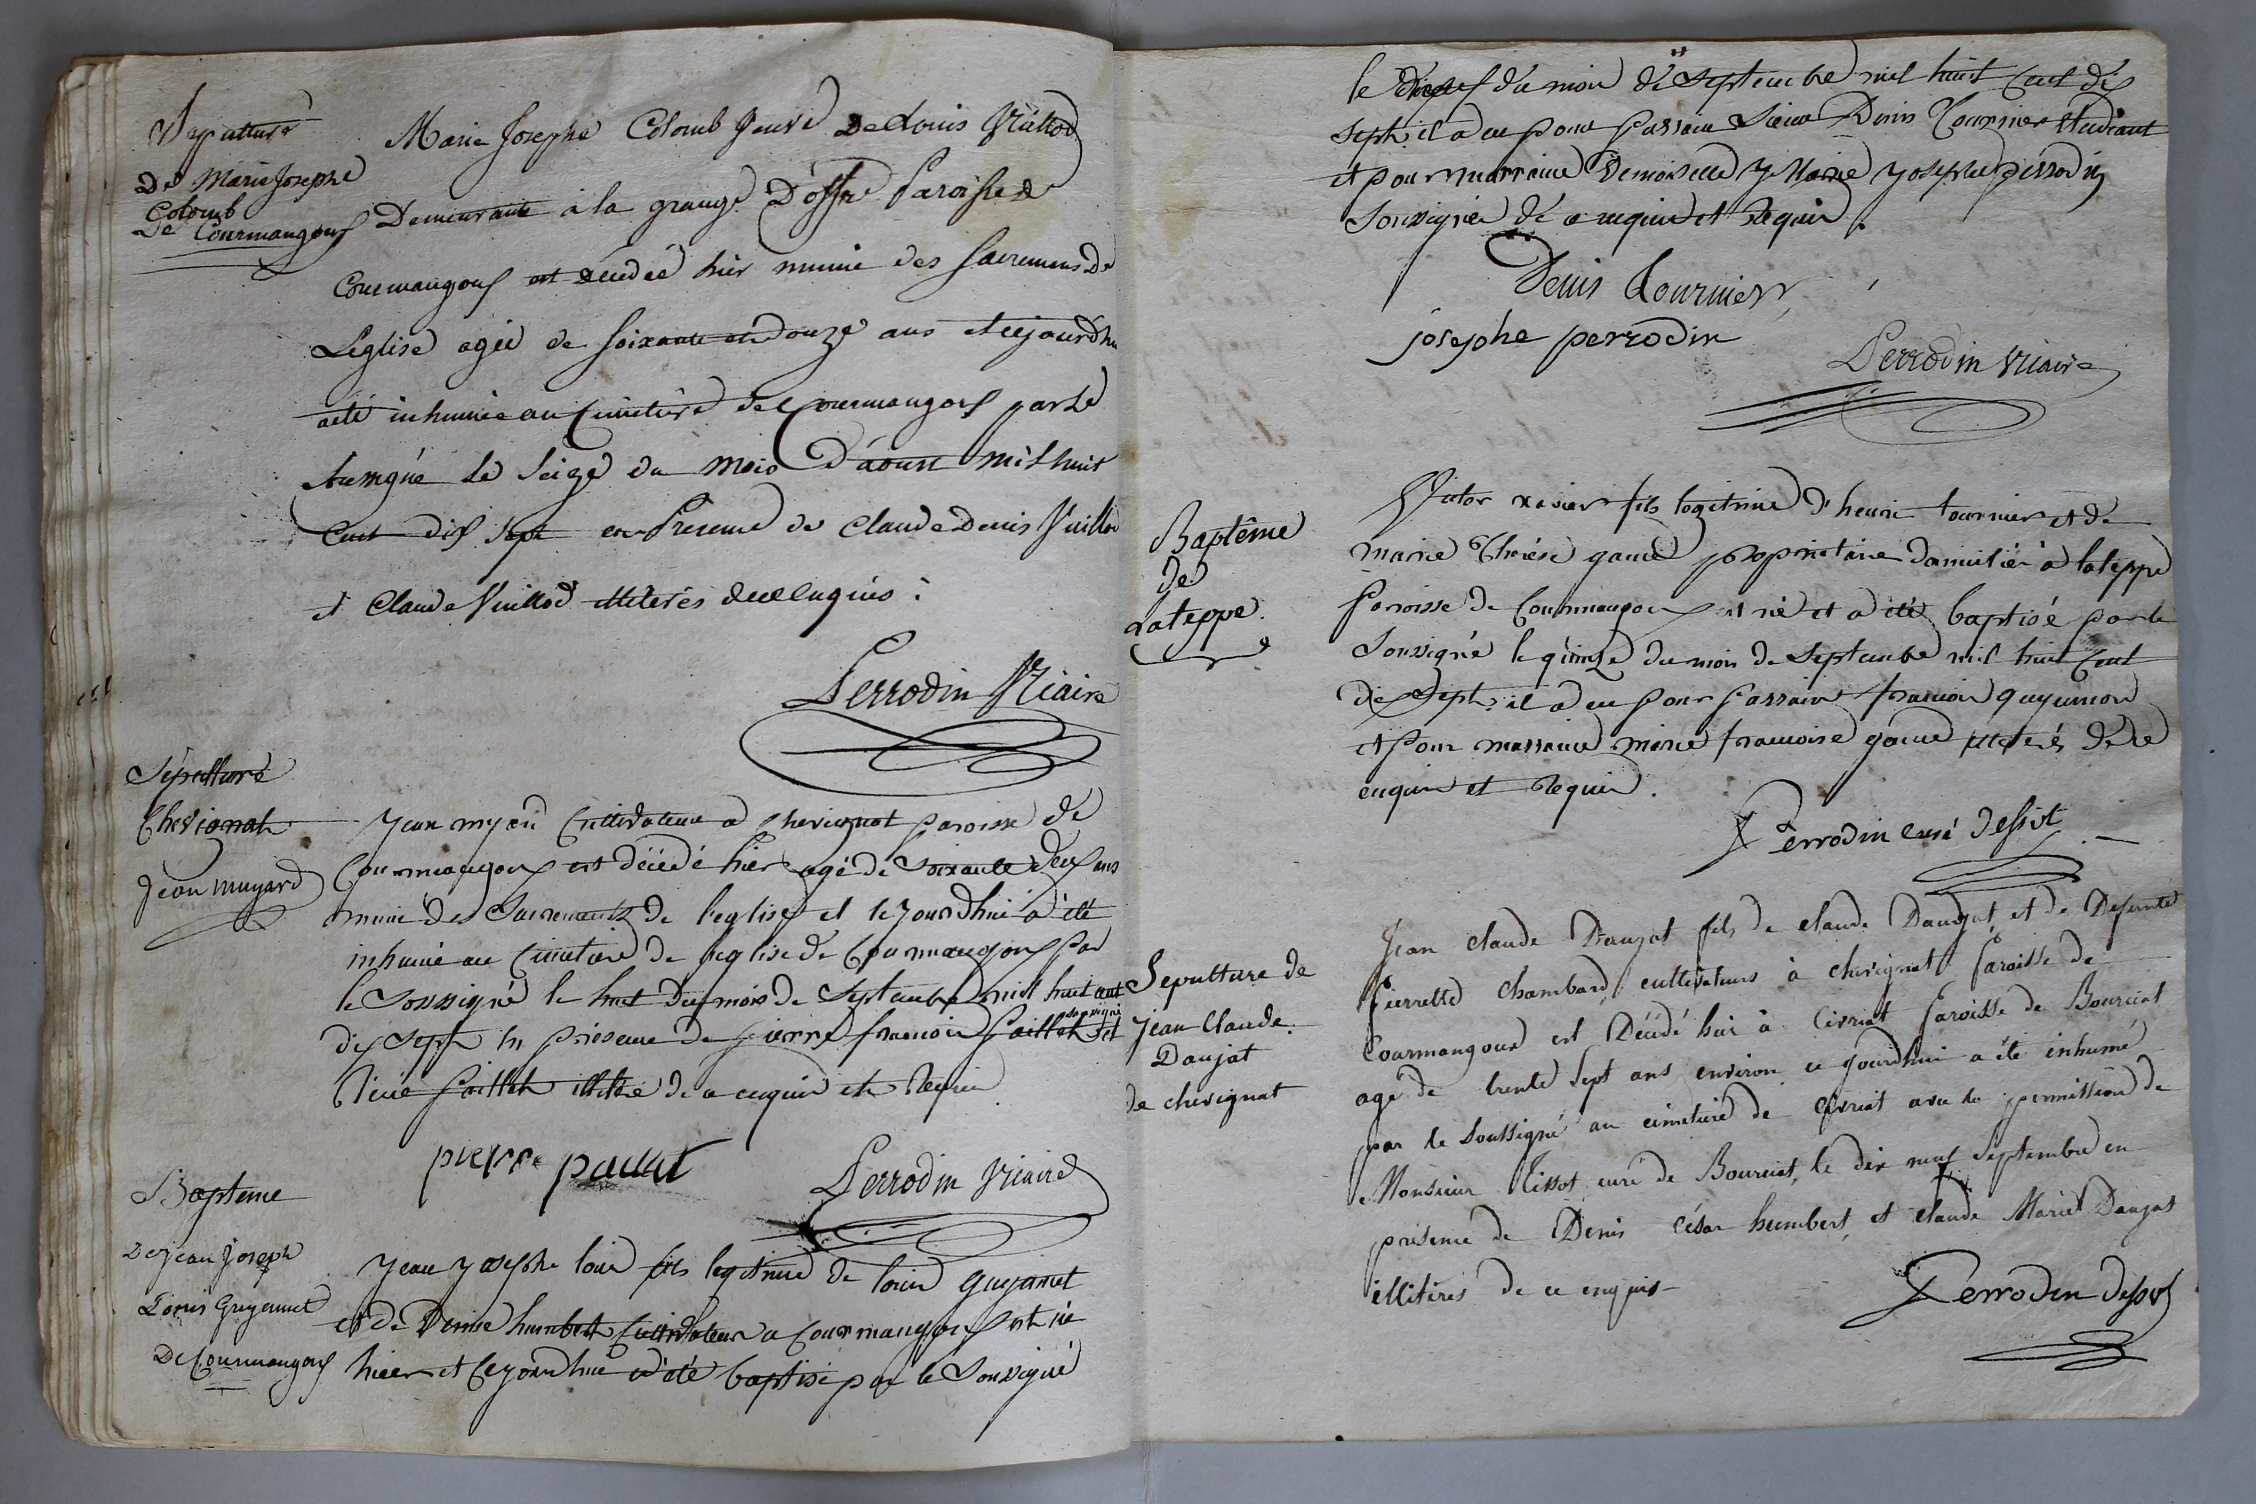 Sepulture
De Marie Josephe
Colomb
De Courmangoux
Marie Josephe Colomb veuve De Louis Vuillod
Demeurante à la grange D'osfre Paroisse De
Courmangoux est décédée hier munie des sacremens De
L'eglise agée de soixante et douze ans et cejourdhu
aété inhumée au Cimetière de Courmangoux par le
soussigné le seize du mois D'aoust mil huit
Cent dix sept en Présence de Claude Denis Vuillod
et Claude Vuillod illiterés de ce enquis :
Perrodin Vicaire
Sépulture
Chevignat
Jean muyard
Jean Cultivateur a chevignat paroisse de
Courmangoux est décédé hier agé de soixante deux ans
muni des Sacrements de l'eglise et le jourdhui a été
inhumé au Cimetière de l'eglise de Courmangoux par
le Soussigné le huit du mois de Septembre mil huit cent
dix sept en présence de pierre francois paillet soussigné et
paillet illitéré de ce enquis et Requis
pierre paillet
Perrodin Vicaire
Bapteme
De jean Joseph
Louis Guyennet
De Courmangoux
jean josephe louis fils legitime de louis guyennet
et de Denise humbert Cultivateur a Courmangoux est né
hier et cejourdhui a été baptisé par le Soussigné
le du mois de septembre mil huit cent dix
sept il a eu pour parrain sieur Denis Tournier Etudiant
et pour marraine Demoiselle Marie josephe perrodin
Soussignés de ce enquis et Requis .
Denis Tournier
josephe perrodin
Perrodin Vicaire
Baptême
de
Lateppe.
Victor xavier fils legitime d'henri tournier et de
marie Thérèse propriétaire domicilié à lateppe
paroisse de Courmangoux est né et a été baptisé par le
Soussigné le quinze du mois de septembre mil huit Cent
dix sept. il a eu pour parrain francois
et pour marraine marie francoise illiterés de ce
enquis et Requis .
Perrodin curé dessvt
Sepulture de
jean Claude.
Daujat
de chevignat
Jean claude Daujat fils de claude Daujat, et de Defunte
Pierrette Chambard, cultivateurs à chevignat Paroisse de
Courmangoux est Décédé hier à Civriat Paroisse de Bourciat
agé de trente sept ans environ ce jourdhui a été inhumé
par le Soussigné au cimetiere de Civriat avec la permission de
Monsieur Tissot curé de Bourciat, le dix neuf septembre en
présence de Denis césar humbert, et claude Marie Daujat
illitérés de ce enquis
Perrodin dessvt